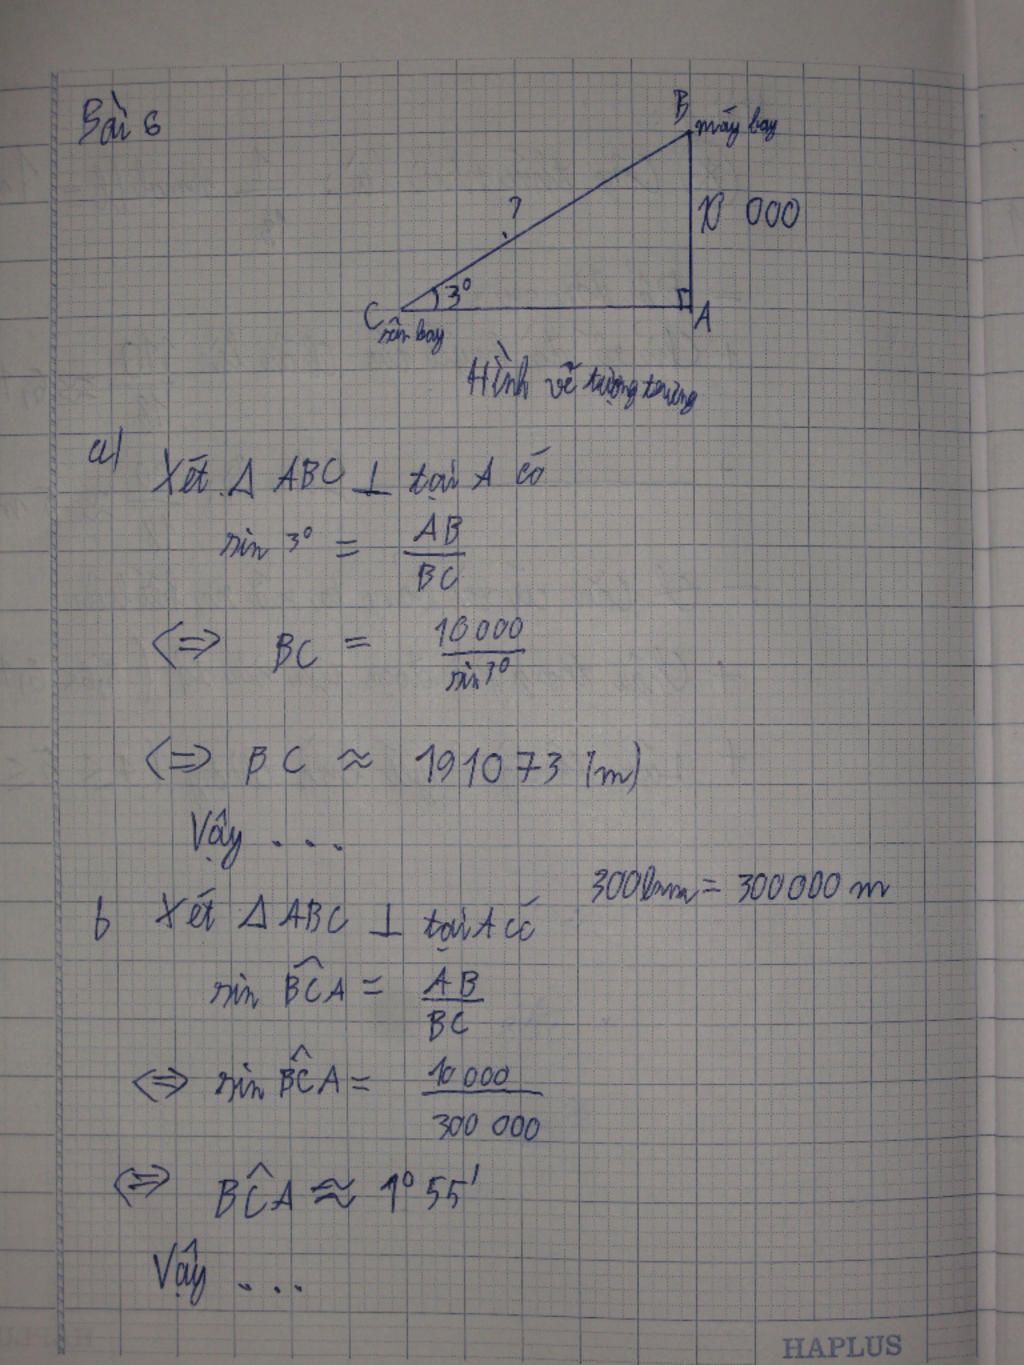 Bài 6
B
máy bay
?
10 000
3°
C
A
sân bay
Hình vẽ tượng trưng
a)
Xét Δ ABC ⊥ tại A có
sin 3° = AB / BC
<=> BC = 10 000 / sin 3°
<=> BC ≈ 191073 (m)
Vậy ...
300km = 300000 m
b Xét Δ ABC ⊥ tại A có
sin BĈA = AB / BC
<=> sin BĈA = 10 000 / 300 000
<=> BĈA ≈ 1° 55'
Vậy ...
HAPLUS